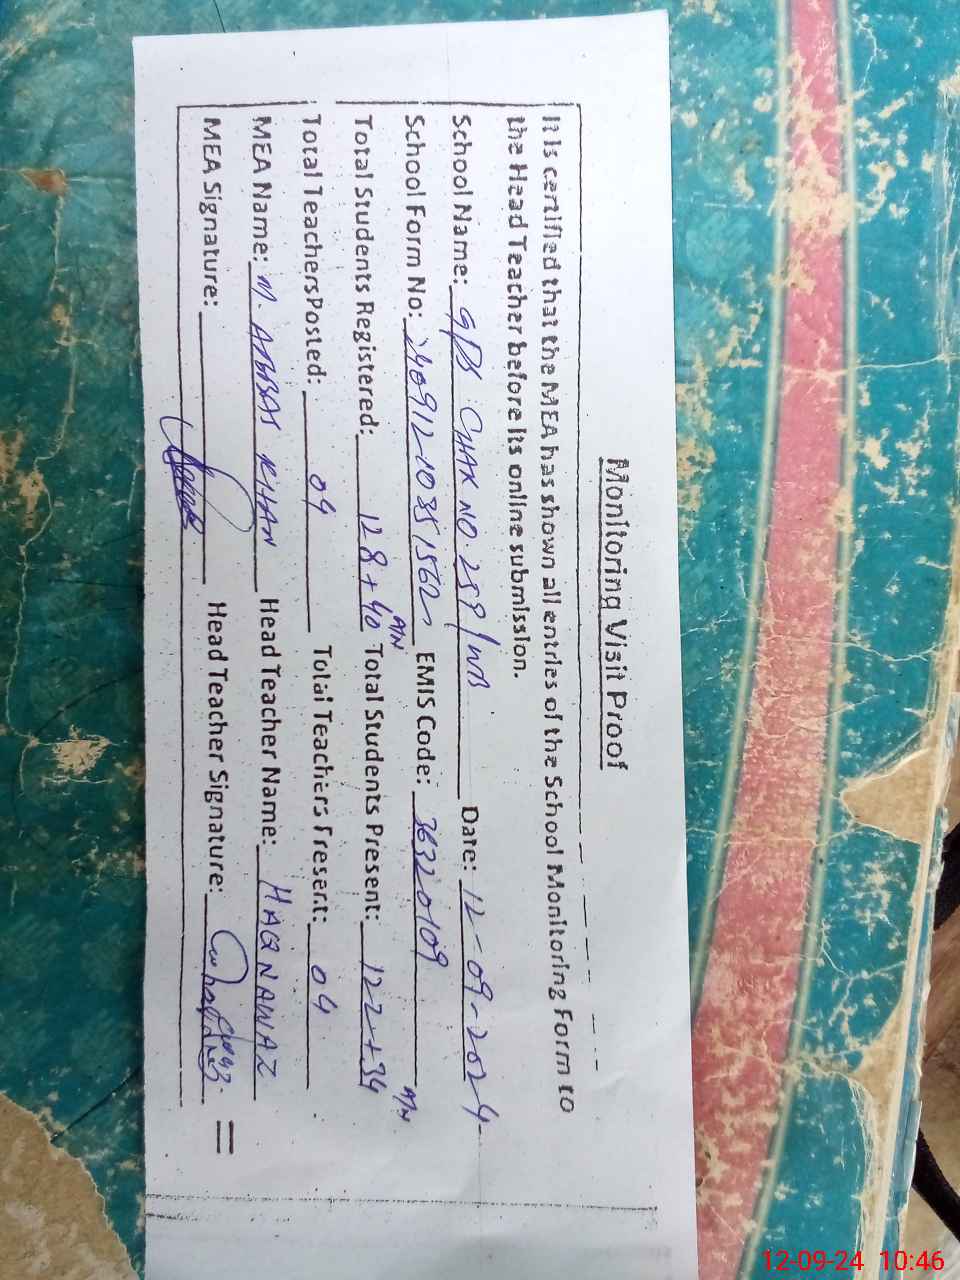 Monitoring Visit Proof
It is certified that the MEA has shown all entries of the School Monitoring Form to
the Head Teacher before its online submission.
School Name: GPS CHAK NO. 259/WB Date: 12-09-2024
School Form No: 240912-10351562 EMIS Code: 36320109
Total Students Registered: 128+40 A/N Total Students Present: 122+34 A/N
Total Teachers Posted: 04 Total Teachers Present: 04
MEA Name: M. ABBAS KHAN Head Teacher Name: HAQ NAWAZ
MEA Signature: Head Teacher Signature:
12-09-24 10:46